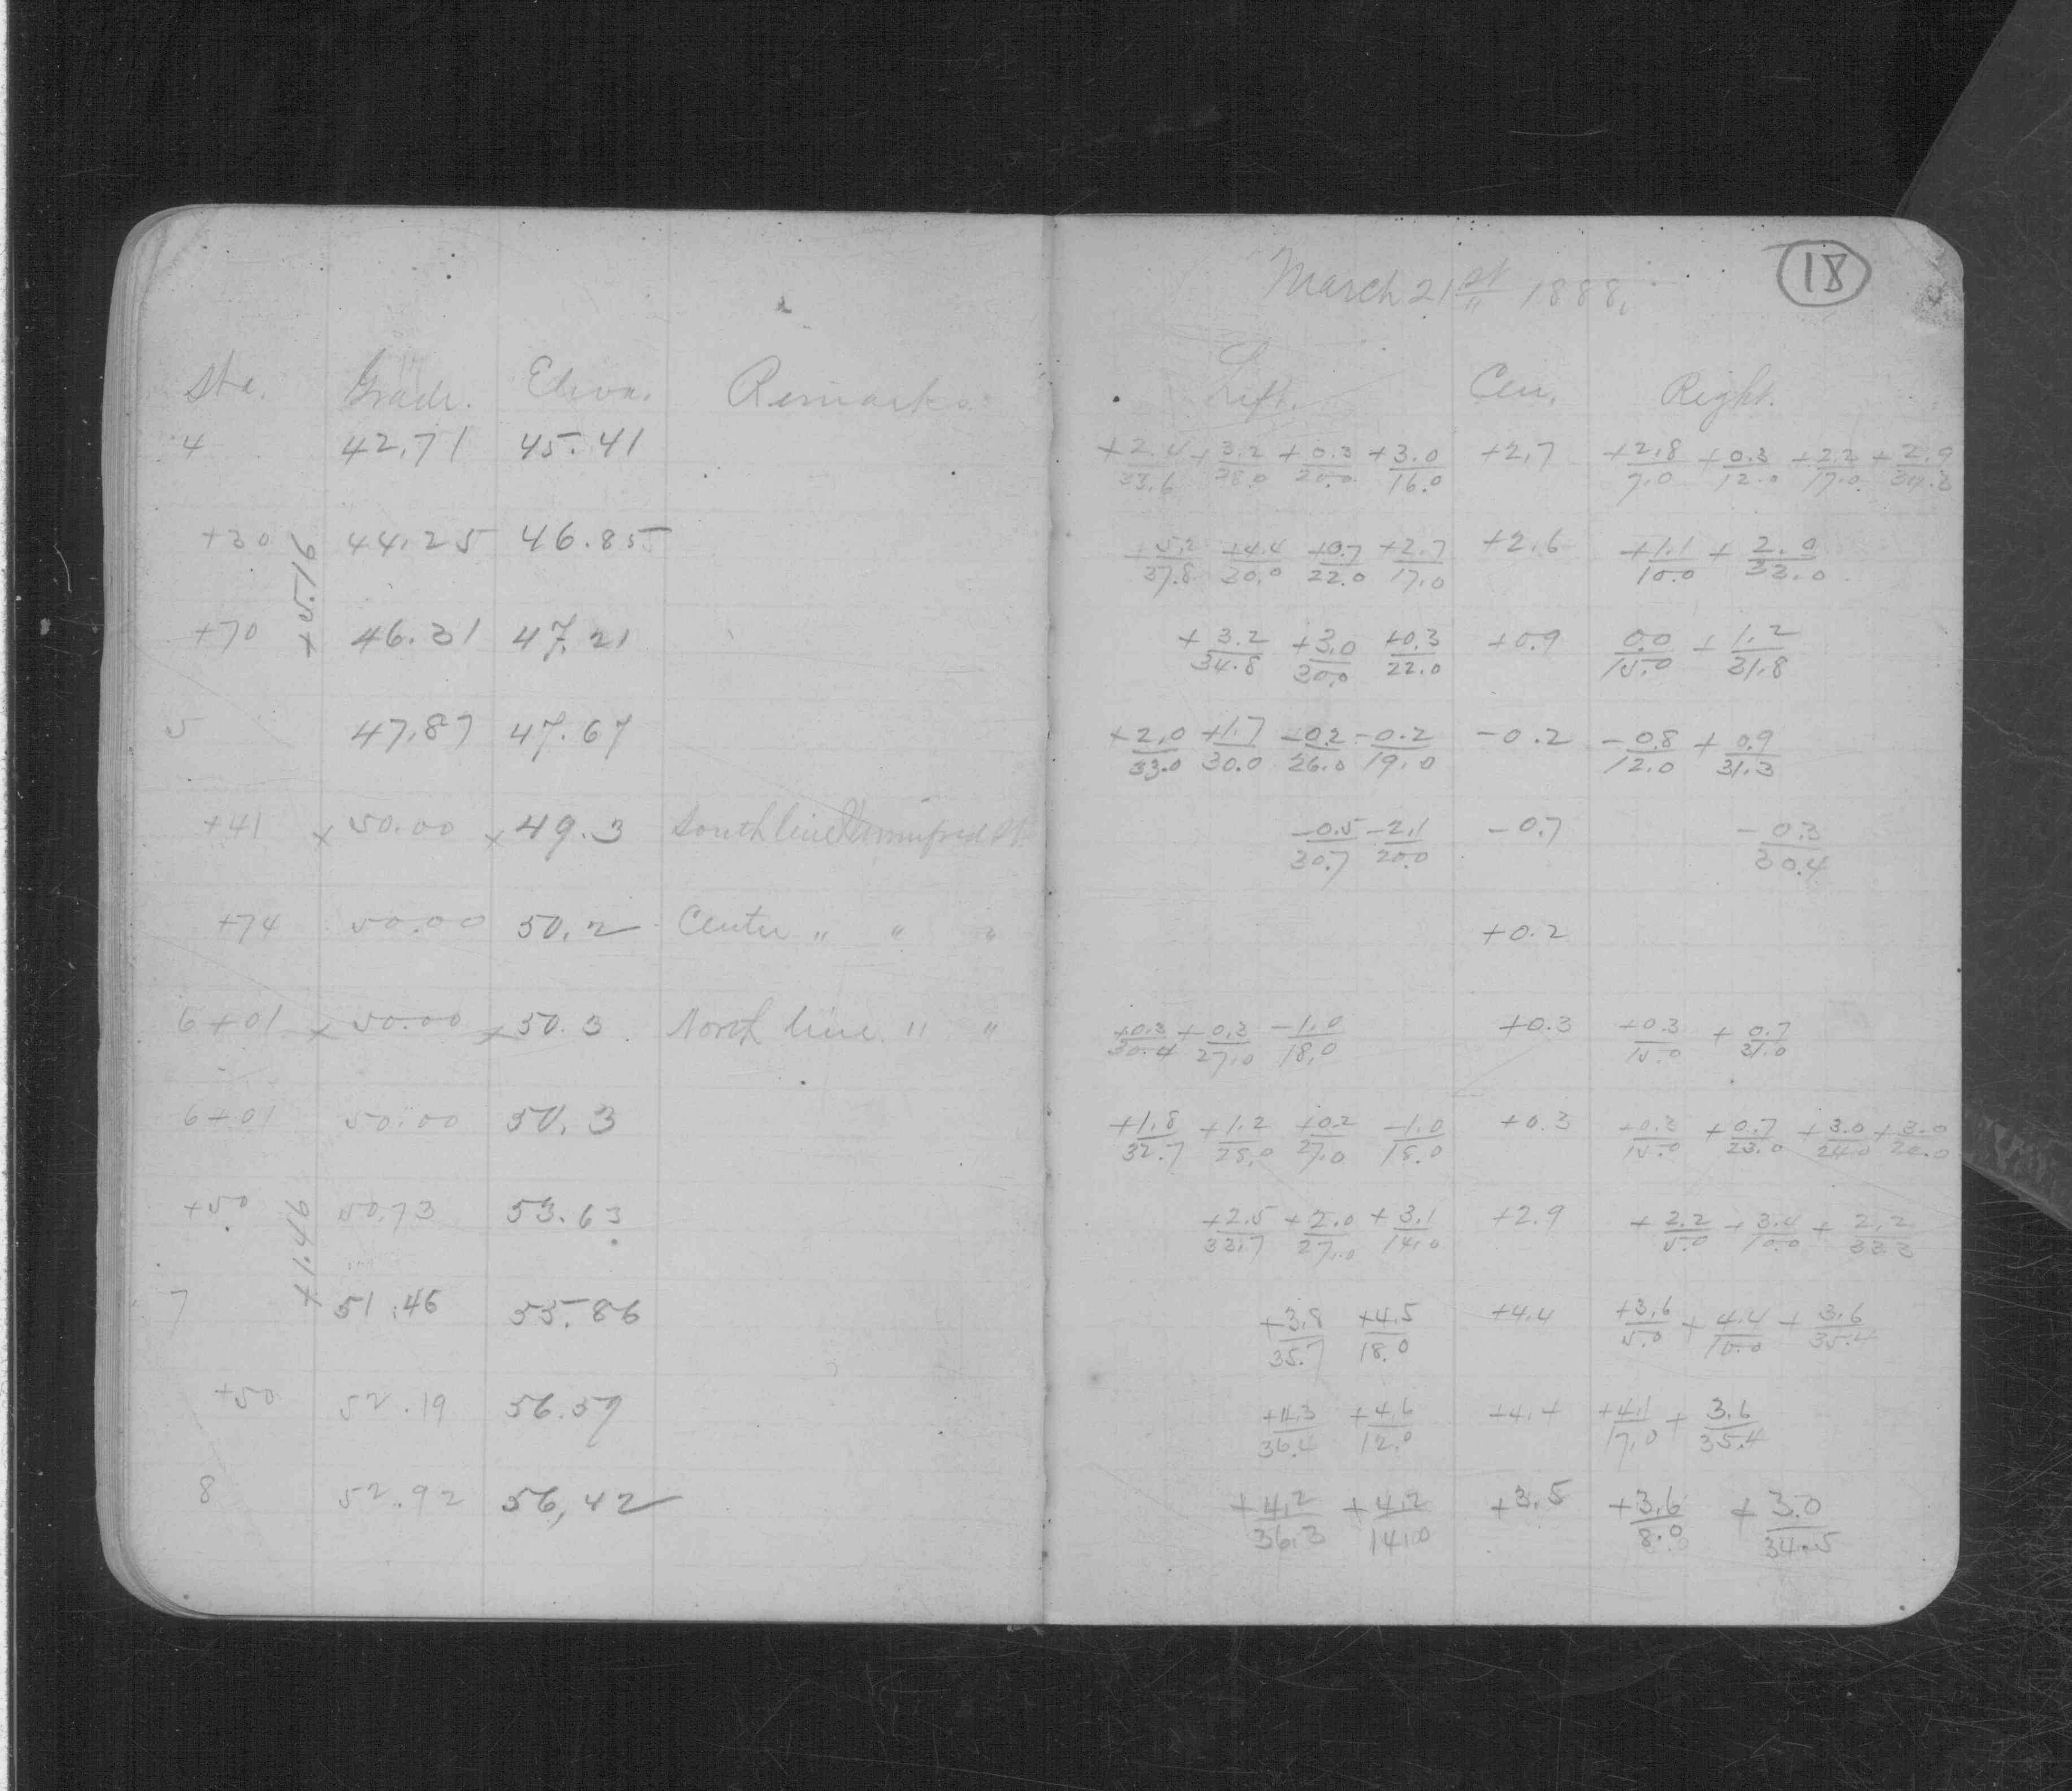 March 21st 1888,
18
Sta. Grade. Eleva. Remarks. Left. Cen. Right.
4 42.71 45.41 +2.4/33.6 +3.2/28.0 +0.3/20.0 +3.0/16.0 +2.7 +2.8/7.0 +0.3/12.0 +2.2/17.0 +2.9/34.3
+30 44.25 46.85 +5.2/37.8 +4.4/30.0 +0.7/22.0 +2.7/17.0 +2.6 +1.1/10.0 +2.0/33.0
+5.16
+70 46.31 47.21 +3.2/34.8 +3.0/30.0 +0.3/22.0 +0.9 0.0/15.0 +1.2/31.8
5 47.87 47.67 +2.0/33.0 +1.7/30.0 -0.2/26.0 -0.2/19.0 -0.2 -0.8/12.0 +0.9/31.3
+41 x 50.00 x 49.3 South line Winnifred St. -0.5/30.7 -2.1/20.0 -0.7 -0.3/30.4
+74 50.00 50.2 Center " " " +0.2
6+01 x 50.00 x 50.3 North line " " +0.3/30.4 +0.3/27.0 -1.0/18.0 +0.3 +0.3/15.0 +0.7/31.0
6+01 50.00 50.3 +1.8/32.7 +1.2/28.0 +0.2/27.0 -1.0/18.0 +0.3 +0.3/15.0 +0.7/23.0 +3.0/24.0 +3.0/26.0
+50 50.73 53.63 +2.5/33.7 +2.0/27.0 +3.1/14.0 +2.9 +2.2/5.0 +3.4/10.0 +2.2/33.3
+1.46
7 51.46 55.86 +3.8/35.7 +4.5/18.0 +4.4 +3.6/5.0 +4.4/10.0 +3.6/35.4
+50 52.19 56.59 +4.3/36.4 +4.6/12.0 +4.4 +4.1/17.0 +3.6/35.4
8 52.92 56,42 +4.2/36.3 +4.2/14.0 +3.5 +3.6/8.0 +3.0/34.5